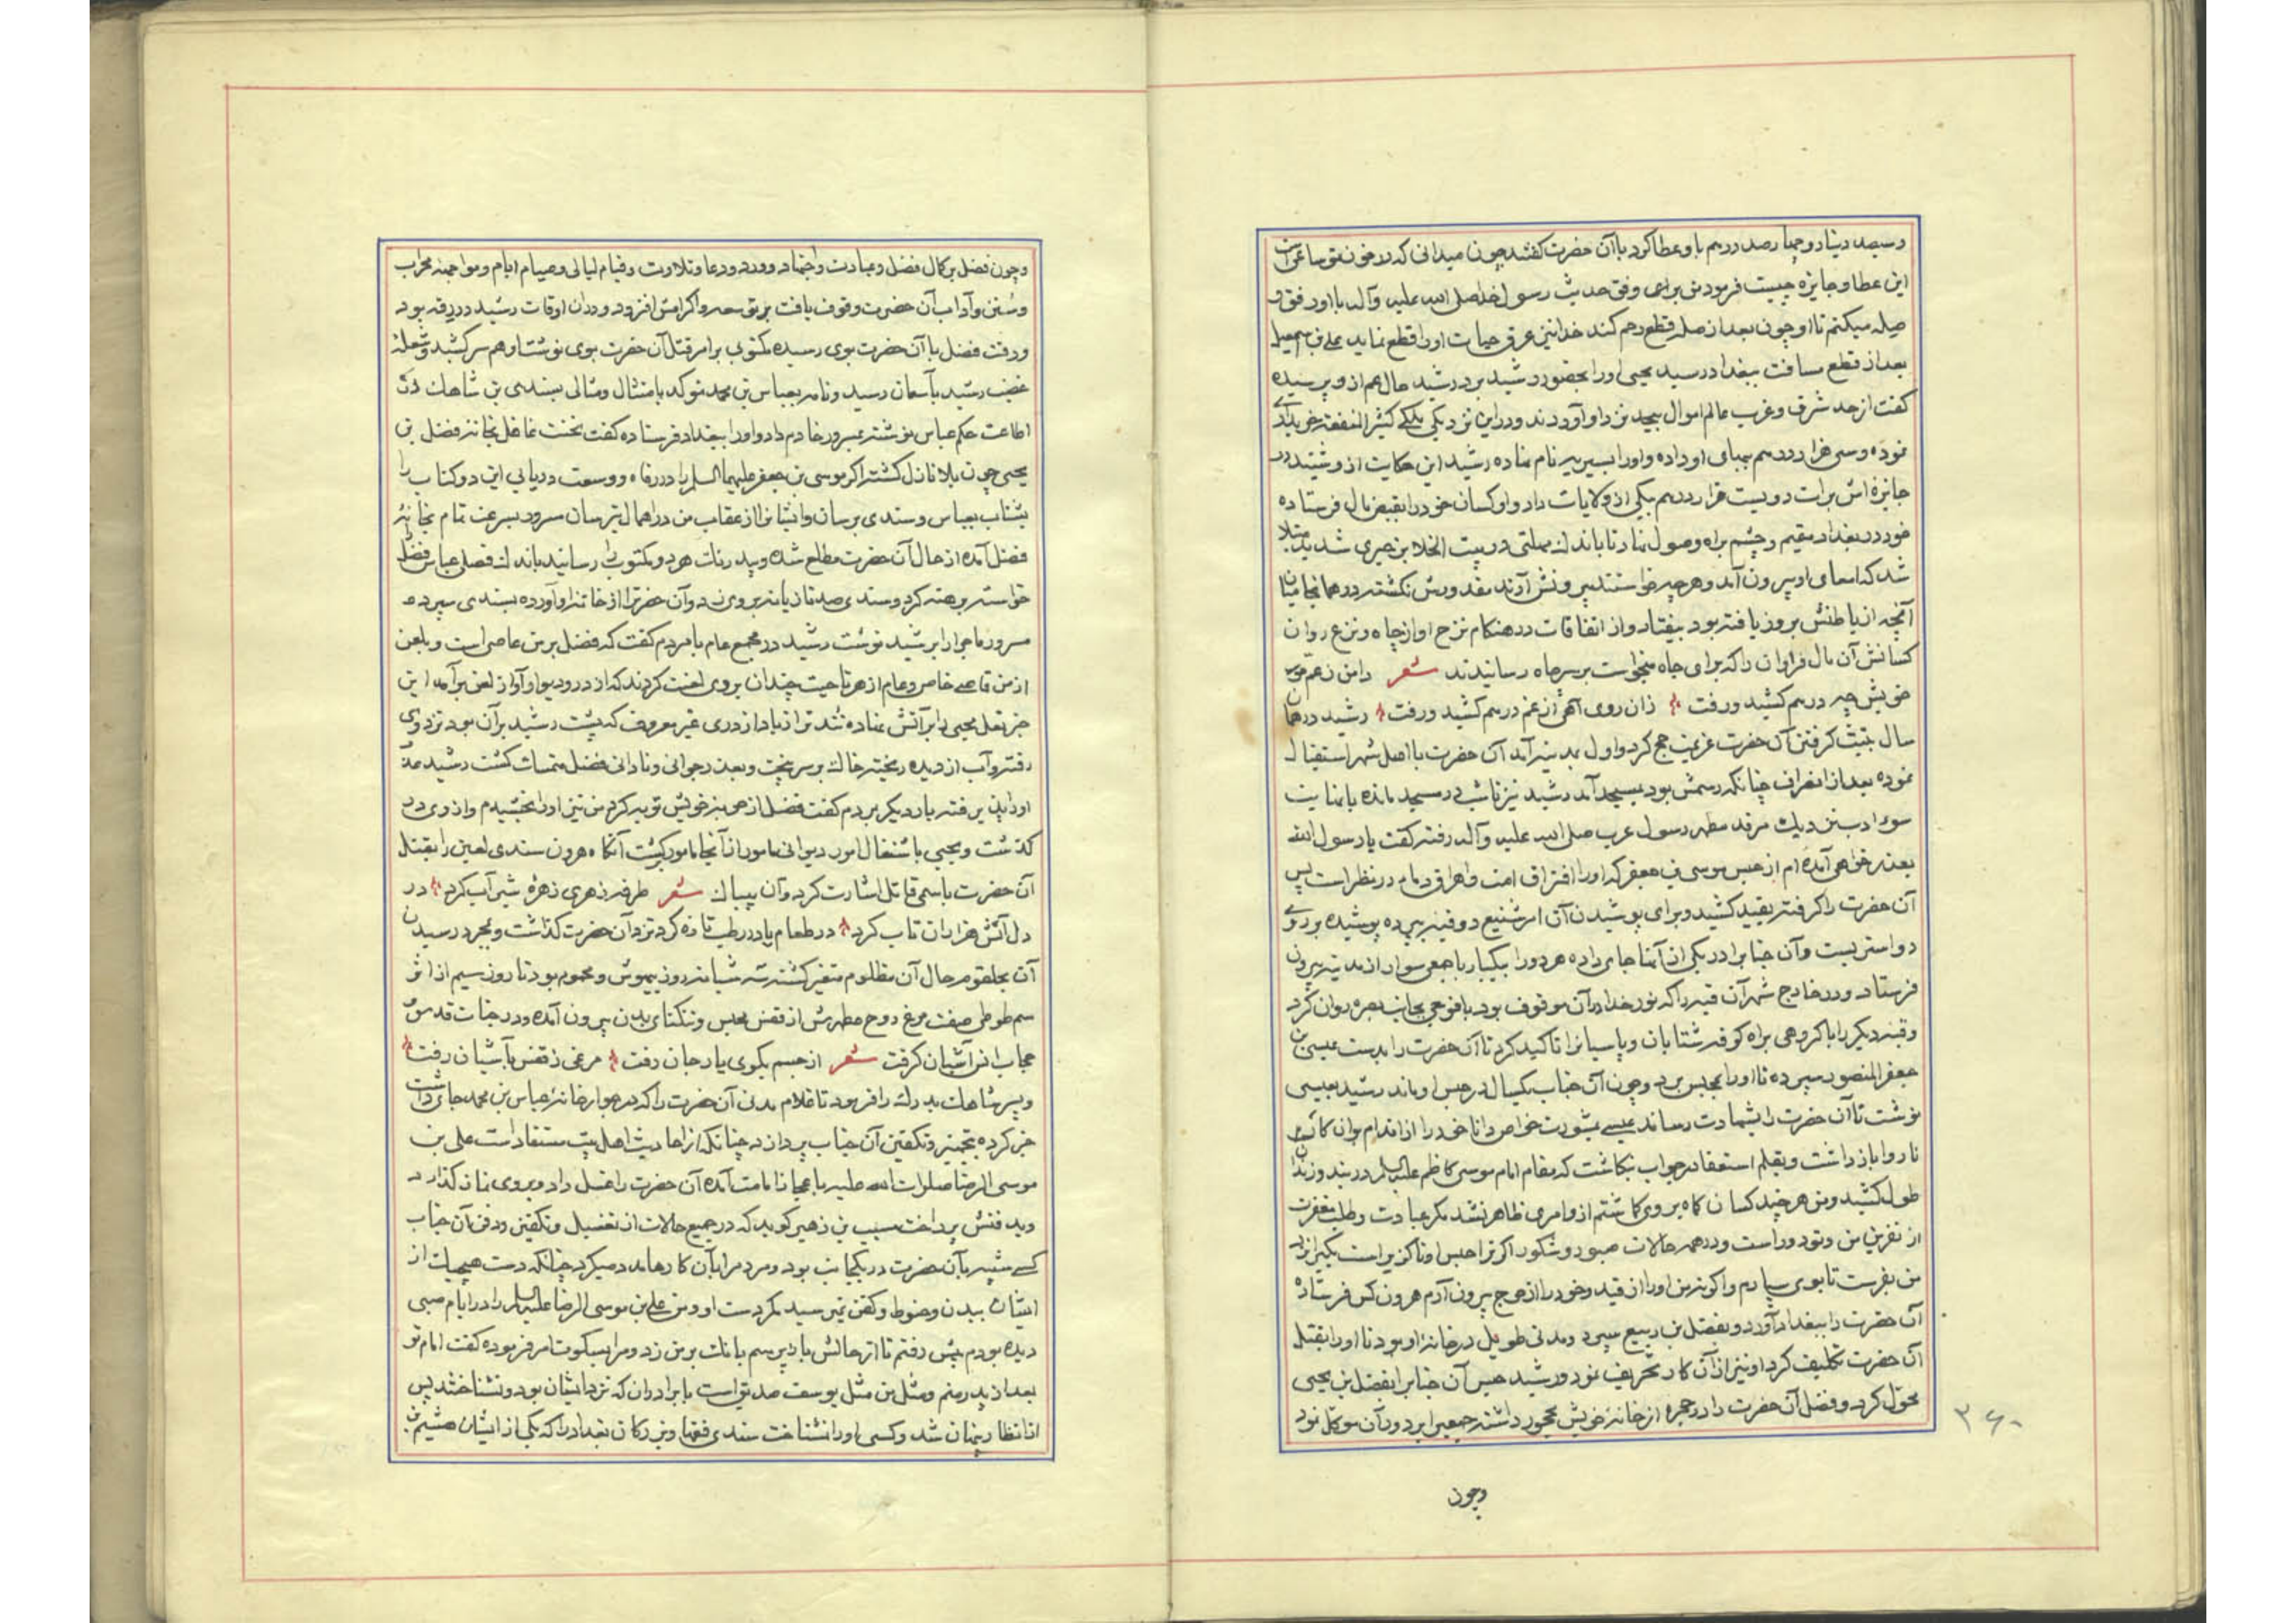 و سیصد دینار و چهارصد درهم باو عطا کرد با آن حضرت گفتند چون میدانی که در خون تو ساعی است
این عطا و جایزه چیست فرمود من برای وفق حدیث رسول خدا صلی الله علیه وآله با او رفق و
صله میکنم تا او چون بعد از صله قطع رحم کند خدا نیز عرق حیات اورا قطع نماید علی بن اسمعیل
بعد از قطع مسافت ببغداد رسید یحیی اورا بحضور رشید برد رشید حال هم ازو پرسیده
گفت از حد شرق و غرب عالم اموال بیحد نزد او آوردند و درین نزدیکی ملکی کثیر المنفعة خریداری
نموده و سی هزار درهم ببهای او داده و اورا بسیریه نام نهاده رشید این حکایت ازو شنید در
جایزه اش برات دویست هزار درهم بیکی از ولایات داد و او کسان خود را بقبض مال فرستاده
خود در بغداد مقیم و چشم براه وصول نهاد تا باندک مهلتی در بیت الخلا بزحیری شدید مبتلا
شد که امعای او بیرون آمد و هر چه خواستند پیرونش آرند مقدورش نکشته در همانجا میان
آنچه از باطنش بروز یافته بود بیفتاد و از اتفاقات در هنکام نزح او از چاه و نزع روان
کسانش آن مال فراوان را که برای جاه میخواست بر سر چاه رسانیدند شعر دامن زعم
خویش چه درهم کشید و رفت زان روی آهی از غم درهم کشید و رفت رشید در همان
سال بنیت گرفتن آن حضرت عزیمت حج کرد و اول بمدینه آمد آن حضرت با اهل شهر استقبال
نموده بعد از انصراف چنانکه رسمش بود بمسجد آمد رشید نیز تا شب در مسجد مانده با نهایت
سوء ادب نزدیک مرقد مطهر رسول عرب صلی الله علیه وآله رفته گفت یا رسول الله
بعذر خواهی آمده ام از حبس موسی بن جعفر که اورا افتراق امت و اهراق دماء در نظر است پس
آن حضرت را گرفته بقید کشید و برای پوشیدن آن امر شنیع دو قبه بپرده پوشیده بر روی
دو استر بست و آن جناب را در یکی از آنها جای داده هر دو را بیکبار با جمعی سوار از مدینه بیرون
فرستاد و در خارج شهر آن قبه را که نور خدا در آن موقوف بود با فوجی بجانب بصره روان کرد
و قبه دیگر را با گروهی براه کوفه شتابان و پاسبانرا تاکید کرد تا آن حضرت را بدست عیسی بن
جعفر المنصور سپرده تا اورا بحبس برد و چون آن جناب یکسال در حبس او ماند رشید بعیسی
نوشت تا آن حضرت را بشهادت رساند عیسی بمشورت خواص دانا خود را از اقدام بران کار
ناروا باز داشت و بقلم استعفا در جواب نکاشت که مقام امام موسی کاظم علیه السلم در بند و زندان
طول کشید و من هر چند کسان گاه بروی کاشتم ازو امری ظاهر نشد مکر عبادت و طلب مغفرت
از نفرین من و تو دور است و در همه حالات صبور و شکور اکر ترا حبس او ناکزیر است بکیر از
من بفرست تا بوی سپارم و اکرنه من اورا از قید و خود را از حرج بیرون آرم هرون کس فرستاده
آن حضرت را ببغداد آورد و بفضل بن ربیع سپرد و مدتی طویل در خانه او بود تا اورا بقتل
آن حضرت تکلیف کرد او نیز از آن کار تحریف نمود و رشید حبس آن جناب را بفضل بن یحیی
محول کرد و فضل آن حضرت را در حجره از خانه خویش محجور داشته جمعی را بر در آن موکل نمود
۳۶۰
وچون
وچون فضل بر کمال فضل و عبادت و اجتهاد و ورد و دعا و تلاوت و قیام لیالی و صیام ایام و مواجهه محراب
و سنن و آداب آن حضرت وقوف یافت بر توسعه و اکرامش افزود و در آن اوقات رشید در رقه بود
و رفت فضل با آن حضرت بوی رسیده مکتوبی بر امر قتل آن حضرت بوی نوشت او هم سر کشید و شعلهٔ
غضب رشید بآسمان رسید و نامه بعباس بن محمد موکد بامتثال و مثالی بسندی بن شاهک در
اطاعت حکم عباس نوشته بمسرور خادم داد و اورا ببغداد فرستاده گفت نخست غافل بخانه فضل بن
یحیی چون بلا نازل گشته اکر موسی بن جعفر علیهما السلم را در رفاه و وسعت دریابی این دو کتاب را
بشتاب بعباس و سندی برسان و ایشانرا از عقاب من در اهمال بترسان مسرور بسرعت تمام بخانهٔ
فضل آمده از حال آن حضرت مطلع شده و بیدرنگ هر دو مکتوب را رسانید باندک فصلی عباس فضل
خواسته برهنه کرد و سندی صد تازیانه بروی زد و آن حضرترا از خانه او آورده بسندی سپرده
مسرور ماجرا را برشید نوشت رشید در مجمع عام با مردم گفت که فضل بر من عاصی است و بلعن
از من قاصی خاص و عام از هر ناحیت چندان بروی لعنت کردند که از در و دیوار آواز لعن برآمد این
خبر نعل یحیی را بر آتش نهاده تند تر از باد از دری غیر معروف که پشت رشید بر آن بود نزد وی
رفته و آب از دیده ریخته خاک بر سر بیخت و بعذر جوانی و نادانی فضل متمسک کشت رشید عذر
اورا پذیرفته بار دیگر بمردم گفت فضل از جرم خویش توبه کرد من نیز اورا بخشیدم و از وی در
کذشت و یحیی باشتغال امور دیوانی مامور از آنجا مامور کشت آنگاه هرون سندی لعین را بقتل
آن حضرت باسمی قاتل اشارت کرد و آن بیباک شعر طرفه زهری زهرهٔ شیر آب کرد در
دل آتش هزاران تاب کرد در طعام یا در رطب تازه کرد نزد آن حضرت گذاشت و بمجرد رسیدن
آن بحلقوم حال آن مظلوم متغیر کشته سه شبانه روز بیهوش و محموم بود تا روز سیم از اثر
سم طوطی صفت مرغ روح مطهرش از قفس محبس و تنکنای بدن بیرون آمده و درجنات قدس
آشیان کرفت شعر از جسم بکوی یار جان رفت مرغی ز قفس بآشیان رفت
و پسر شاهک بد رک را فرمود تا غلام مدنی آن حضرت را که در جوار خانهٔ عباس بن محمد جای داشت
خبر کرده بتجهیز و تکفین آن جناب پردازد چنانکه از احادیث اهل بیت مستفاد است علی بن
موسی الرضا صلوات الله علیه با عجاز امامت آمده آن حضرت را غسل داد و بروی نماز گذارد
و بدفنش پرداخت مسیب بن زهیر کوید که در جمیع حالات از تغسیل و تکفین و دفن آن جناب
کسی شبیه بآن حضرت در یکجانب بود و مردم را بآن کارها مدد میکرد چنانکه دست هیچیک از
ایشان ببدن و حنوط و کفن نمیرسید مکر دست او و من علی بن موسی الرضا علیه السلم را در ایام صبی
دیده بودم پیش رفتم تا از حالش باز پرسم بانک بر من زد و مرا بسکوت امر فرموده گفت امام تو
بعد از پدر منم و مثل من مثل یوسف صدیق است با برادران که نزد ایشان بود و نشناختند پس
از انظار پنهان شد و کسی اورا نشناخت سندی فقها و بزرکان بغداد را که یکی از ایشان هشیم بن